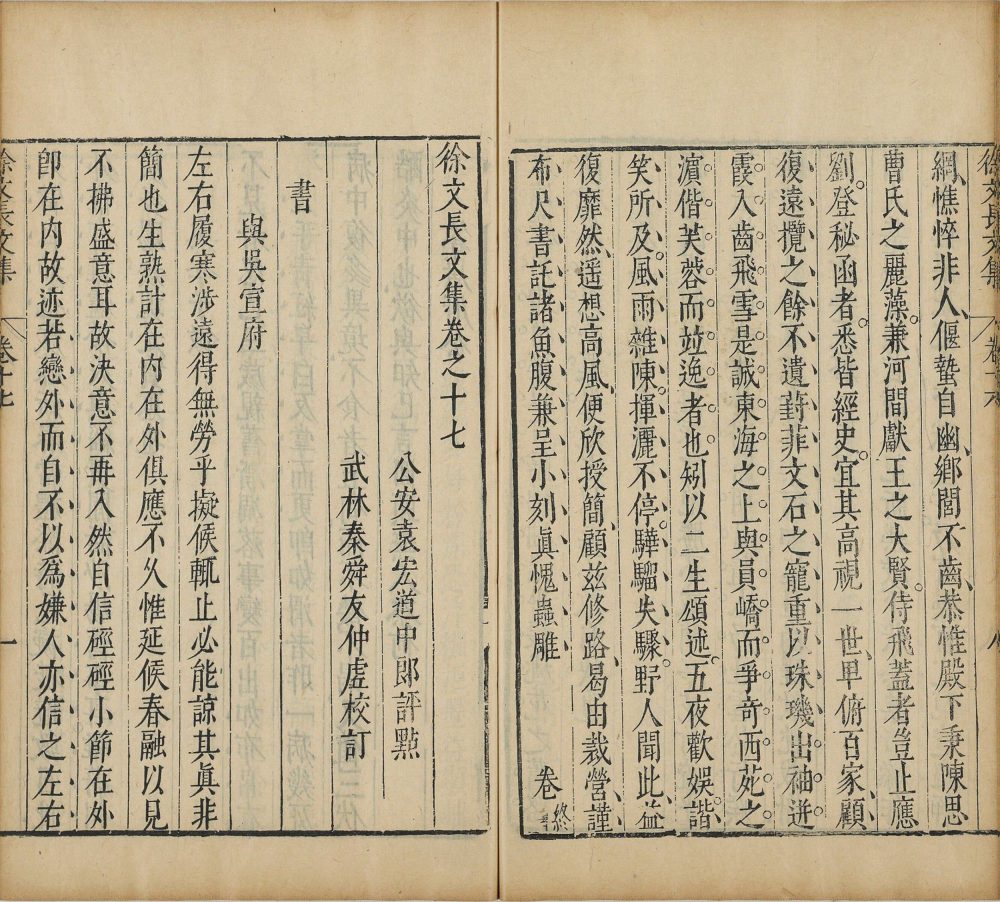 綱憔悴非人偃蟄自幽鄉閭不齒恭惟殿下秉陳思
曹氏之麗藻兼河間獻王之大賢侍飛蓋者豈止應
劉登秘函者悉皆經史宜其高視一世卑俯百家顧
復遠攬之餘不遺葑菲文石之寵重以珠璣出袖迸
霞入齒飛雪是誠東海之上與員嶠而爭奇西苑之
濵偕芙蓉而竝逸者也矧以二生頌述五夜歡娛諧
笑所及風雨雜陳揮灑不停驊騮失驟野人聞此益
復靡然遥想高風便欣授簡顧茲修路曷由裁營謹
布尺書託諸魚腹兼呈小刻眞愧蟲雕
卷終
徐文長文集卷之十七
公安袁宏道中郎評點
武林秦舜友仲虛校訂
書
與吳宣府
左右履寒涉遠得無勞乎擬候輒止必能諒其眞非
簡也生熟計在内在外俱應不久惟延候春融以見
不拂盛意耳故決意不再入然自信硜硜小節在外
卽在内故迹若戀外而自不以為嫌人亦信之左右
徐文長文集
卷十七
一